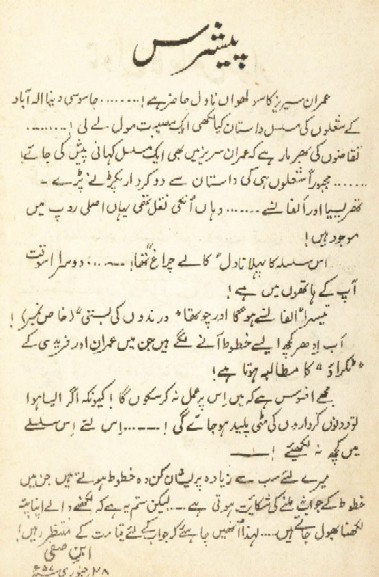 پیشرس
عمران سیریز کا سولھواں ناول حاضر ہے! ........ جاسوسی دنیا الہ آباد
کے شعلوں کی مسلسل داستان کیا لکھی اک مصیبت مول لے لی! ........
تقاضوں کی بھرمار ہے کہ عمران سیریز میں بھی ایک مسلسل کہانی پیش کی جائے!
...... مجبوراً شعلوں ہی کی داستان سے دو کردار لیکر ڈالنے پڑے ـ
تھریسیا اور الفانسے ....... وہاں اُنکی نقل تھی یہاں اصلی روپ میں
موجود ہیں!
اس سلسلہ کا پہلا ناول "کالے چراغ" تھا، ...... دوسرا اسوقت
آپ کے ہاتھوں میں ہے!
تیسرا "الفانسے" ہوگا اور چوتھا "درندوں کی بستی" (خاص نمبر)!
آب اِدھر کچھ ایسے خطوط آنے لگے ہیں جن میں عمران اور فریدی کے
"ٹکراؤ" کا مطالبہ ہوتا ہے!
مجھے افسوس ہے کہ میں اِس پر عمل نہ کر سکوں گا! کیونکہ اگر ایسا ہوا
تو دونوں کرداروں کی مٹی پلید ہو جائے گی! ...... اِس لئے اِس سلسلے
میں کچھ نہ لکھیئے! ــــ
میرے لئے سب سے زیادہ پریشان کن وہ خطوط ہوتے ہیں جن میں
خطوط کے جواب نہ ملنے کی شکائت ہوتی ہے .... لیکن ستم یہ ہے کہ لکھنے والے اپنا پتہ
لکھنا بھول جاتے ہیں .... لہٰذا اُنھیں چاہیئے کہ جواب کے لئے قیامت کے منتظر رہیں!
ابن صفی
۲۸ جنوری ۵۷ء